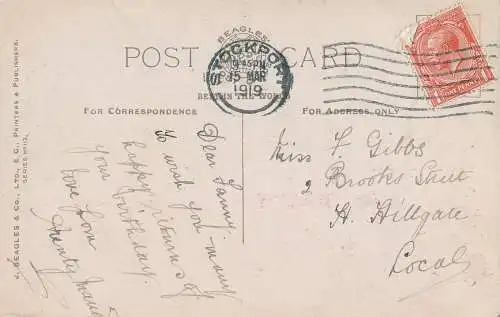 POST CARD
BEAGLES'
STOCKPORT
9.45 PM
15 MAR
1919
BEST IN THE WORLD
FOR CORRESPONDENCE
FOR ADDRESS ONLY
J. BEAGLES & CO., LTD., E.C., PRINTERS & PUBLISHERS.
ONE PENNY
Dear Fanny.
to wish you many
happy returns of
birthday.
your
love from
Miss F Gibbs
2 Brooks Street
H. Hillgate
Local